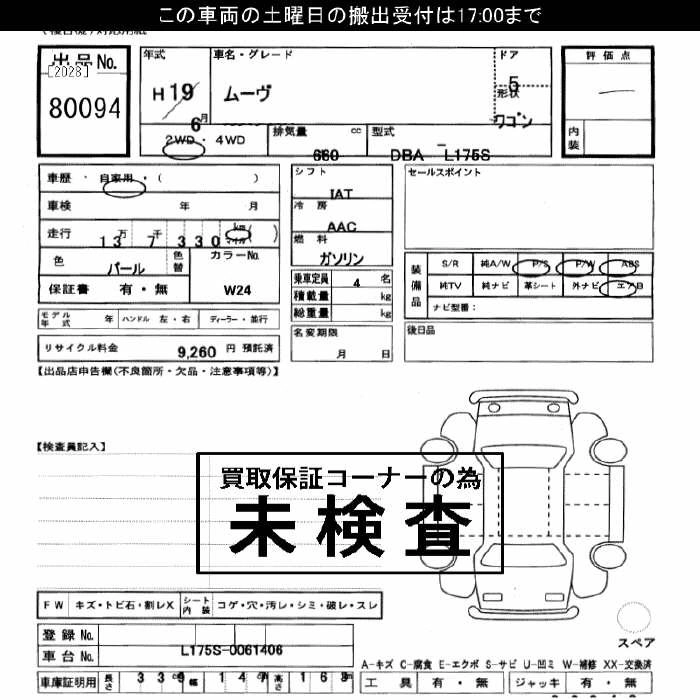 この車両の土曜日の搬出受付は17:00まで
出品No.
[2028]
80094
年式 車名・グレード ドア 評価点
H 19 ムーヴ 5
形状
6月 ワゴン
2WD・4WD 排気量 cc 型式 内装
660 DBA L175S
車歴・自家用・( )
シフト セールスポイント
IAT
車検 年 月
冷房
AAC
走行 万 千 km マイル ( )
13 7 330
燃料
ガソリン
色 パール 色替 カラーNo.
W24
保証書 有・無
乗車定員 4 名
積載量 kg
総重量 kg
装備品 S/R 純A/W P/S P/W ABS
純TV 純ナビ 革シート 外ナビ エアB
ナビ型番:
モデル年式 年 ハンドル 左・右 ディーラー・並行
名変期限
月 日
後日品
リサイクル料金 9,260 円 預託済
【出品店申告欄(不良箇所・欠品・注意事項等)】
【検査員記入】
買取保証コーナーの為
未検査
FW キズ・トビ石・割レX シート内装 コゲ・穴・汚レ・シミ・破レ・スレ
登録No.
車台No. L175S-0061406
スペア
A-キズ C-腐食 E-エクボ S-サビ U-凹ミ W-補修 XX-交換済
車庫証明用 長さ 339 幅 147 高さ 163
工具 有・無 ジャッキ 有・無